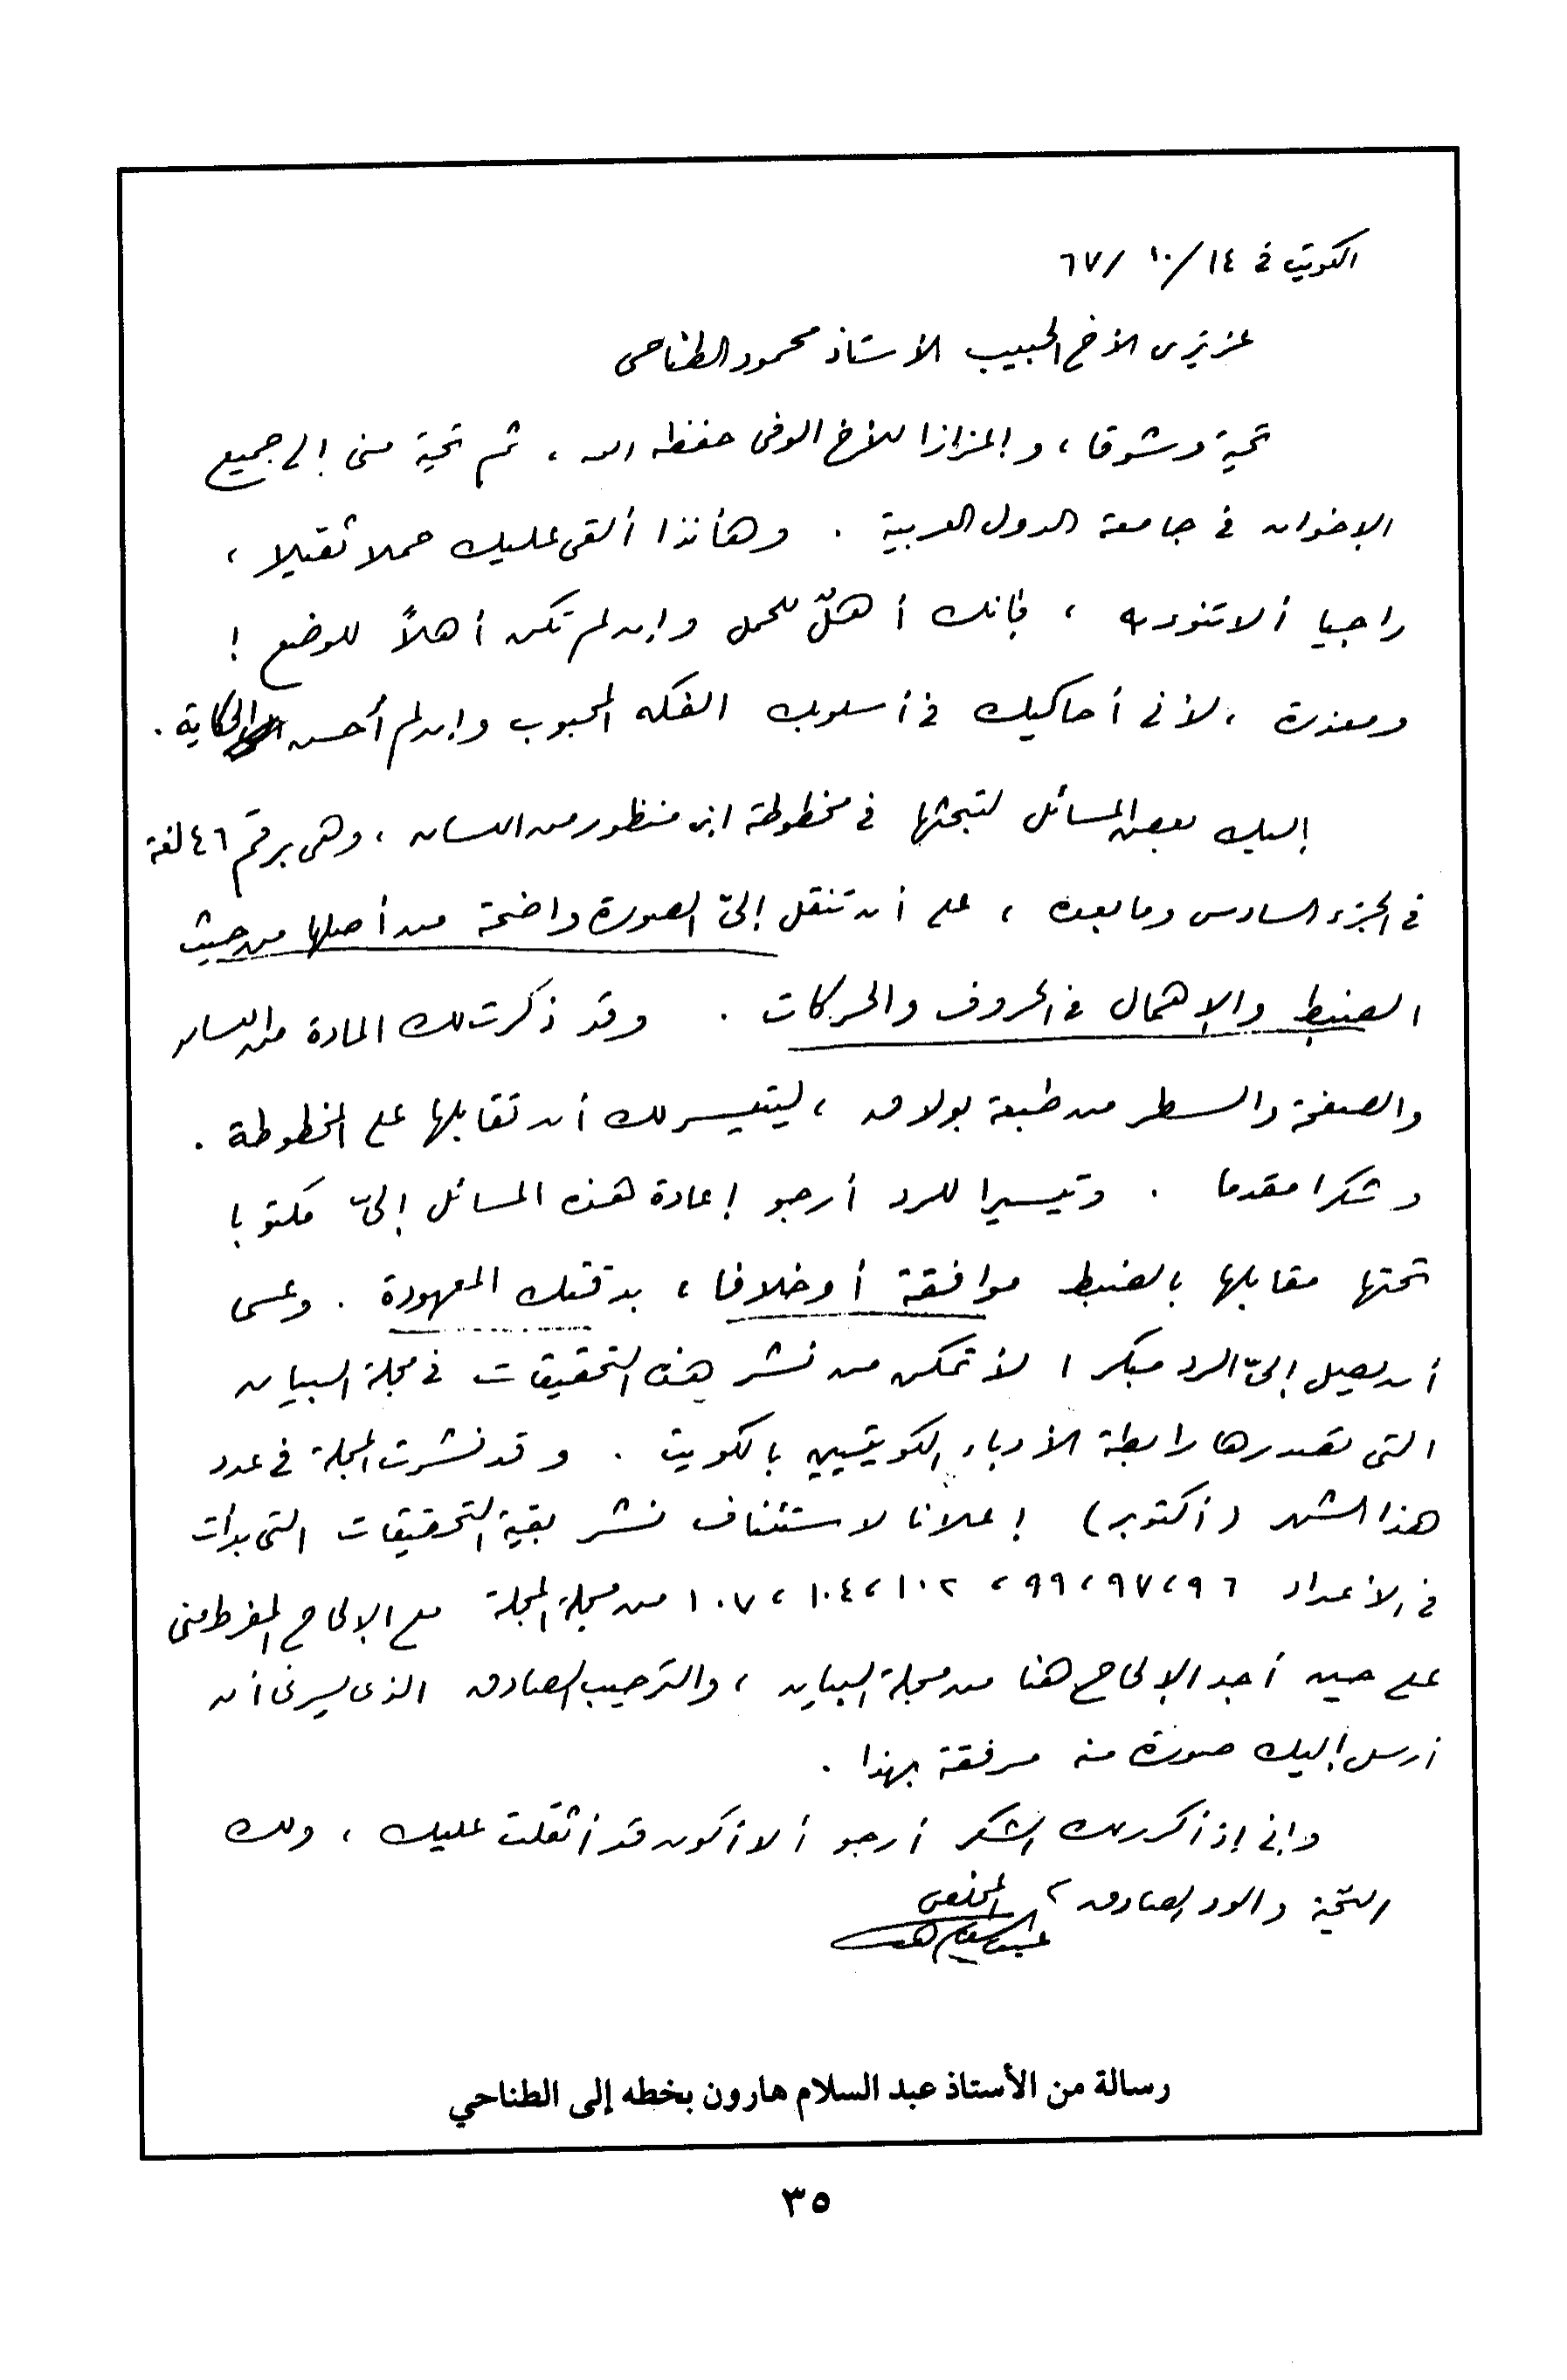 الكويت في ١٤/ ١٠/ ٦٧
عزيزى الأخ الحبيب الأستاذ محمود الطناحى
تحية وشوقا، وإعزازا للأخ الوفى حفظه الله، ثم تحية منى إلى جميع
الإخوان في جامعة الدول العربية . وهأنذا ألقى عليك حملا ثقيلا،
راجيا ألا تنوء به، فإنك أهلٌ للحمل وإن لم تكن أهلاً للوضع !
ومعذرة، لأنى أحاكيك في أسلوبك الفكه المحبوب وإن لم أحسن الحكاية .
إليك بعض المسائل لتبحثها في مخطوطة ابن منظور من اللسان، وهى برقم ٤٦ لغة
في الجزء السادس وما بعده، على أن تنقل إليّ الصورة واضحة من أصلها من حيث
الضبط والإهمال في الحروف والحركات . وقد ذكرت لك المادة من اللسان
والصفحة والسطر من طبعة بولاق، ليتيسر لك أن تقابلها على المخطوطة .
وشكرا مقدما . وتيسيرا للرد أرجو إعادة هذه المسائل إليّ مكتوبا
تحتها مقابلها بالضبط موافقة أو خلافا، بدقتك المعهودة . وعسى
أن يصل إليّ الرد مبكرا لأتمكن من نشر هذه التحقيقات في مجلة البيان
التى تصدرها رابطة الأدباء الكويتيين بالكويت . وقد نشرت المجلة في عدد
هذا الشهر (أكتوبر) إعلانا لاستئناف نشر بقية التحقيقات التى بدأت
في الأعداد ٩٦، ٩٧، ٩٩، ١٠٢، ١٠٤، ١٠٧ من مجلة المجلة مع الإلحاح المفرط منى
على حين أجد الإلحاح هنا من مجلة البيان، والترحيب الصادق الذى يسرنى أن
أرسل إليك صورة منه مرفقة بهذا .
وإنى إذ أكرر لك الشكر أرجو ألا أكون قد أثقلت عليك، ولك
التحية والود الصادق، المخلص
عبد السلام هارون
رسالة من الأستاذ عبد السلام هارون بخطه إلى الطناحي
٣٥